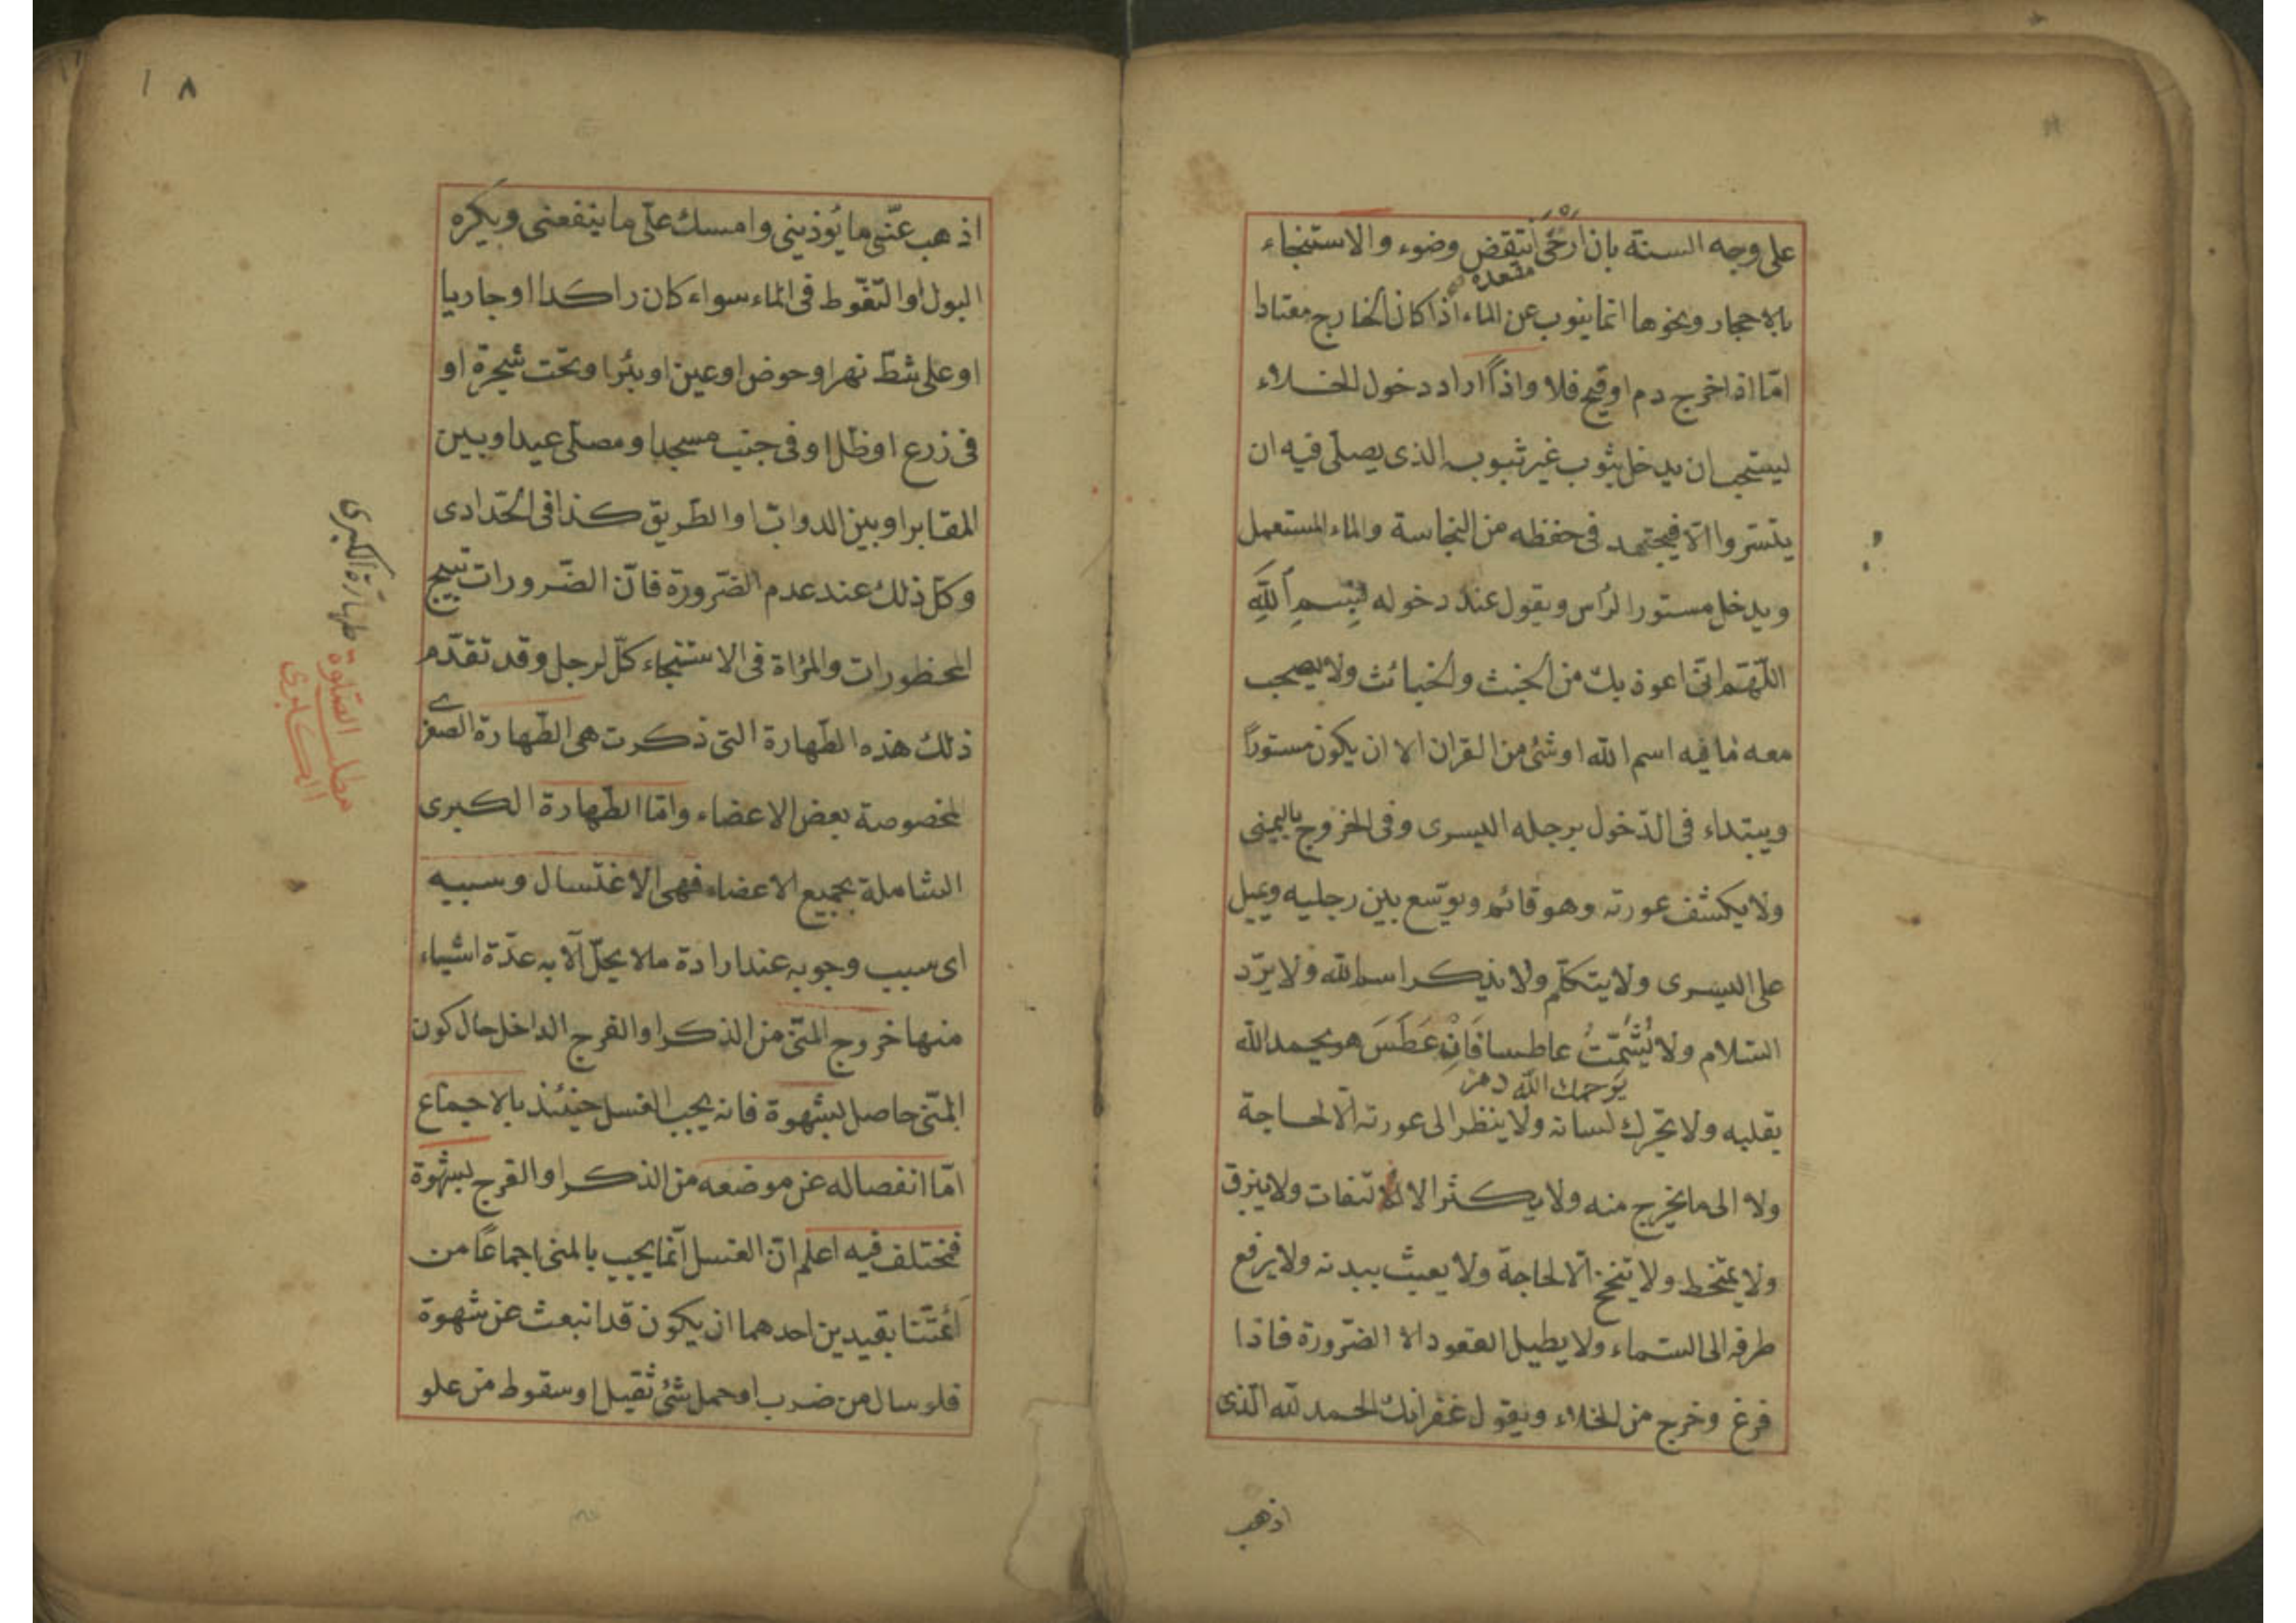 على وجه السنة بان ارخى انتقض وضوء والاستنجاء
بالاحجار ونحوها انما ينوب عن الماء اذا كان الخارج معتادا
امّا اذا خرج دم او قيح فلا واذا اراد دخول الخلاء
ليستحب ان يدخل بثوب غير ثوبه الذى يصلّى فيه ان
يتستر والّا فيجتهد فى حفظه من النجاسة والماء المستعمل
ويدخل مستور الرأس ويقول عند دخوله بِسمِ اللهِ
اللّهمّ انّى اعوذ بك من الخبث والخبائث ولا يصحب
معه ما فيه اسم الله او شئ من القران الا ان يكون مستوراً
ويبتداء فى الدّخول برجله اليسرى وفى الخروج باليمنى
ولا يكشف عورته وهو قائم ويوسّع بين رجليه ويميل
على اليسرى ولا يتكلّم ولا يذكر اسم الله ولا يرّد
السّلام ولا يُشَمّتُ عاطسا فَاِنْ عَطَسَ هو يحمد الله
يرحمك الله
بقلبه ولا يحّرك لسانه ولا ينظر الى عورته الّا لحاجة
ولا الى ما يخرج منه ولا يكثر الالتفات ولا يبزق
ولا يمتخط ولا يتنحنح الّا لحاجة ولا يعبث ببدنه ولا يرفع
طرفه الى السّماء ولا يطيل القعود الا الضّرورة فاذا
فرغ وخرج من الخلاء ويقول غفرانك الحمد لله الّذى
اذهب
٨
اذهب عنّى ما يُوذينى وامسك علّى ما ينفعنى ويكره
البول او التّغّوط فى الماء سواء كان راكدا او جاريا
او على شطّ نهر او حوض او عين او بئر او تحت شجرة او
فى زرع او ظل او فى جنب مسجد او مصلّى عيد او بين
المقابر او بين الدوابّ او الطّريق كذا فى الحّدادى
وكلّ ذلك عند عدم الضّرورة فانّ الضّرورات تبيح
المحظورات والمرأة فى الاستنجاء كلّ لرجل وقد تقدّم
ذلك هذه الطّهارة التى ذكرت هى الطّهارة الصغرى
المخصوصة بعض الاعضاء وامّا الطّهارة الكبرى
الشاملة بجميع الاعضاء فهى الاغتسال وسببه
اى سبب وجوبه عند ارادة ما لا يحلّ الّا به عدّة اشياء
منها خروج المنّى من الذكر او الفرج الداخل حال كون
المنّى حاصل بشهوة فانه يجب الغسل حينئذ بالاجماع
امّا انفصاله عن موضعه من الذكر او الفرج بشهوة
فمختلف فيه اعلم انّ الغسل انّما يجب بالمنى اجماعًا من
أئمّتنا بقيدين احدهما ان يكون قد انبعث عن شهوة
فلو سال من ضرب او حمل شئ ثقيل او سقوط من علو
طهارة الكبرى
مطلب الصلوة
الكبرى